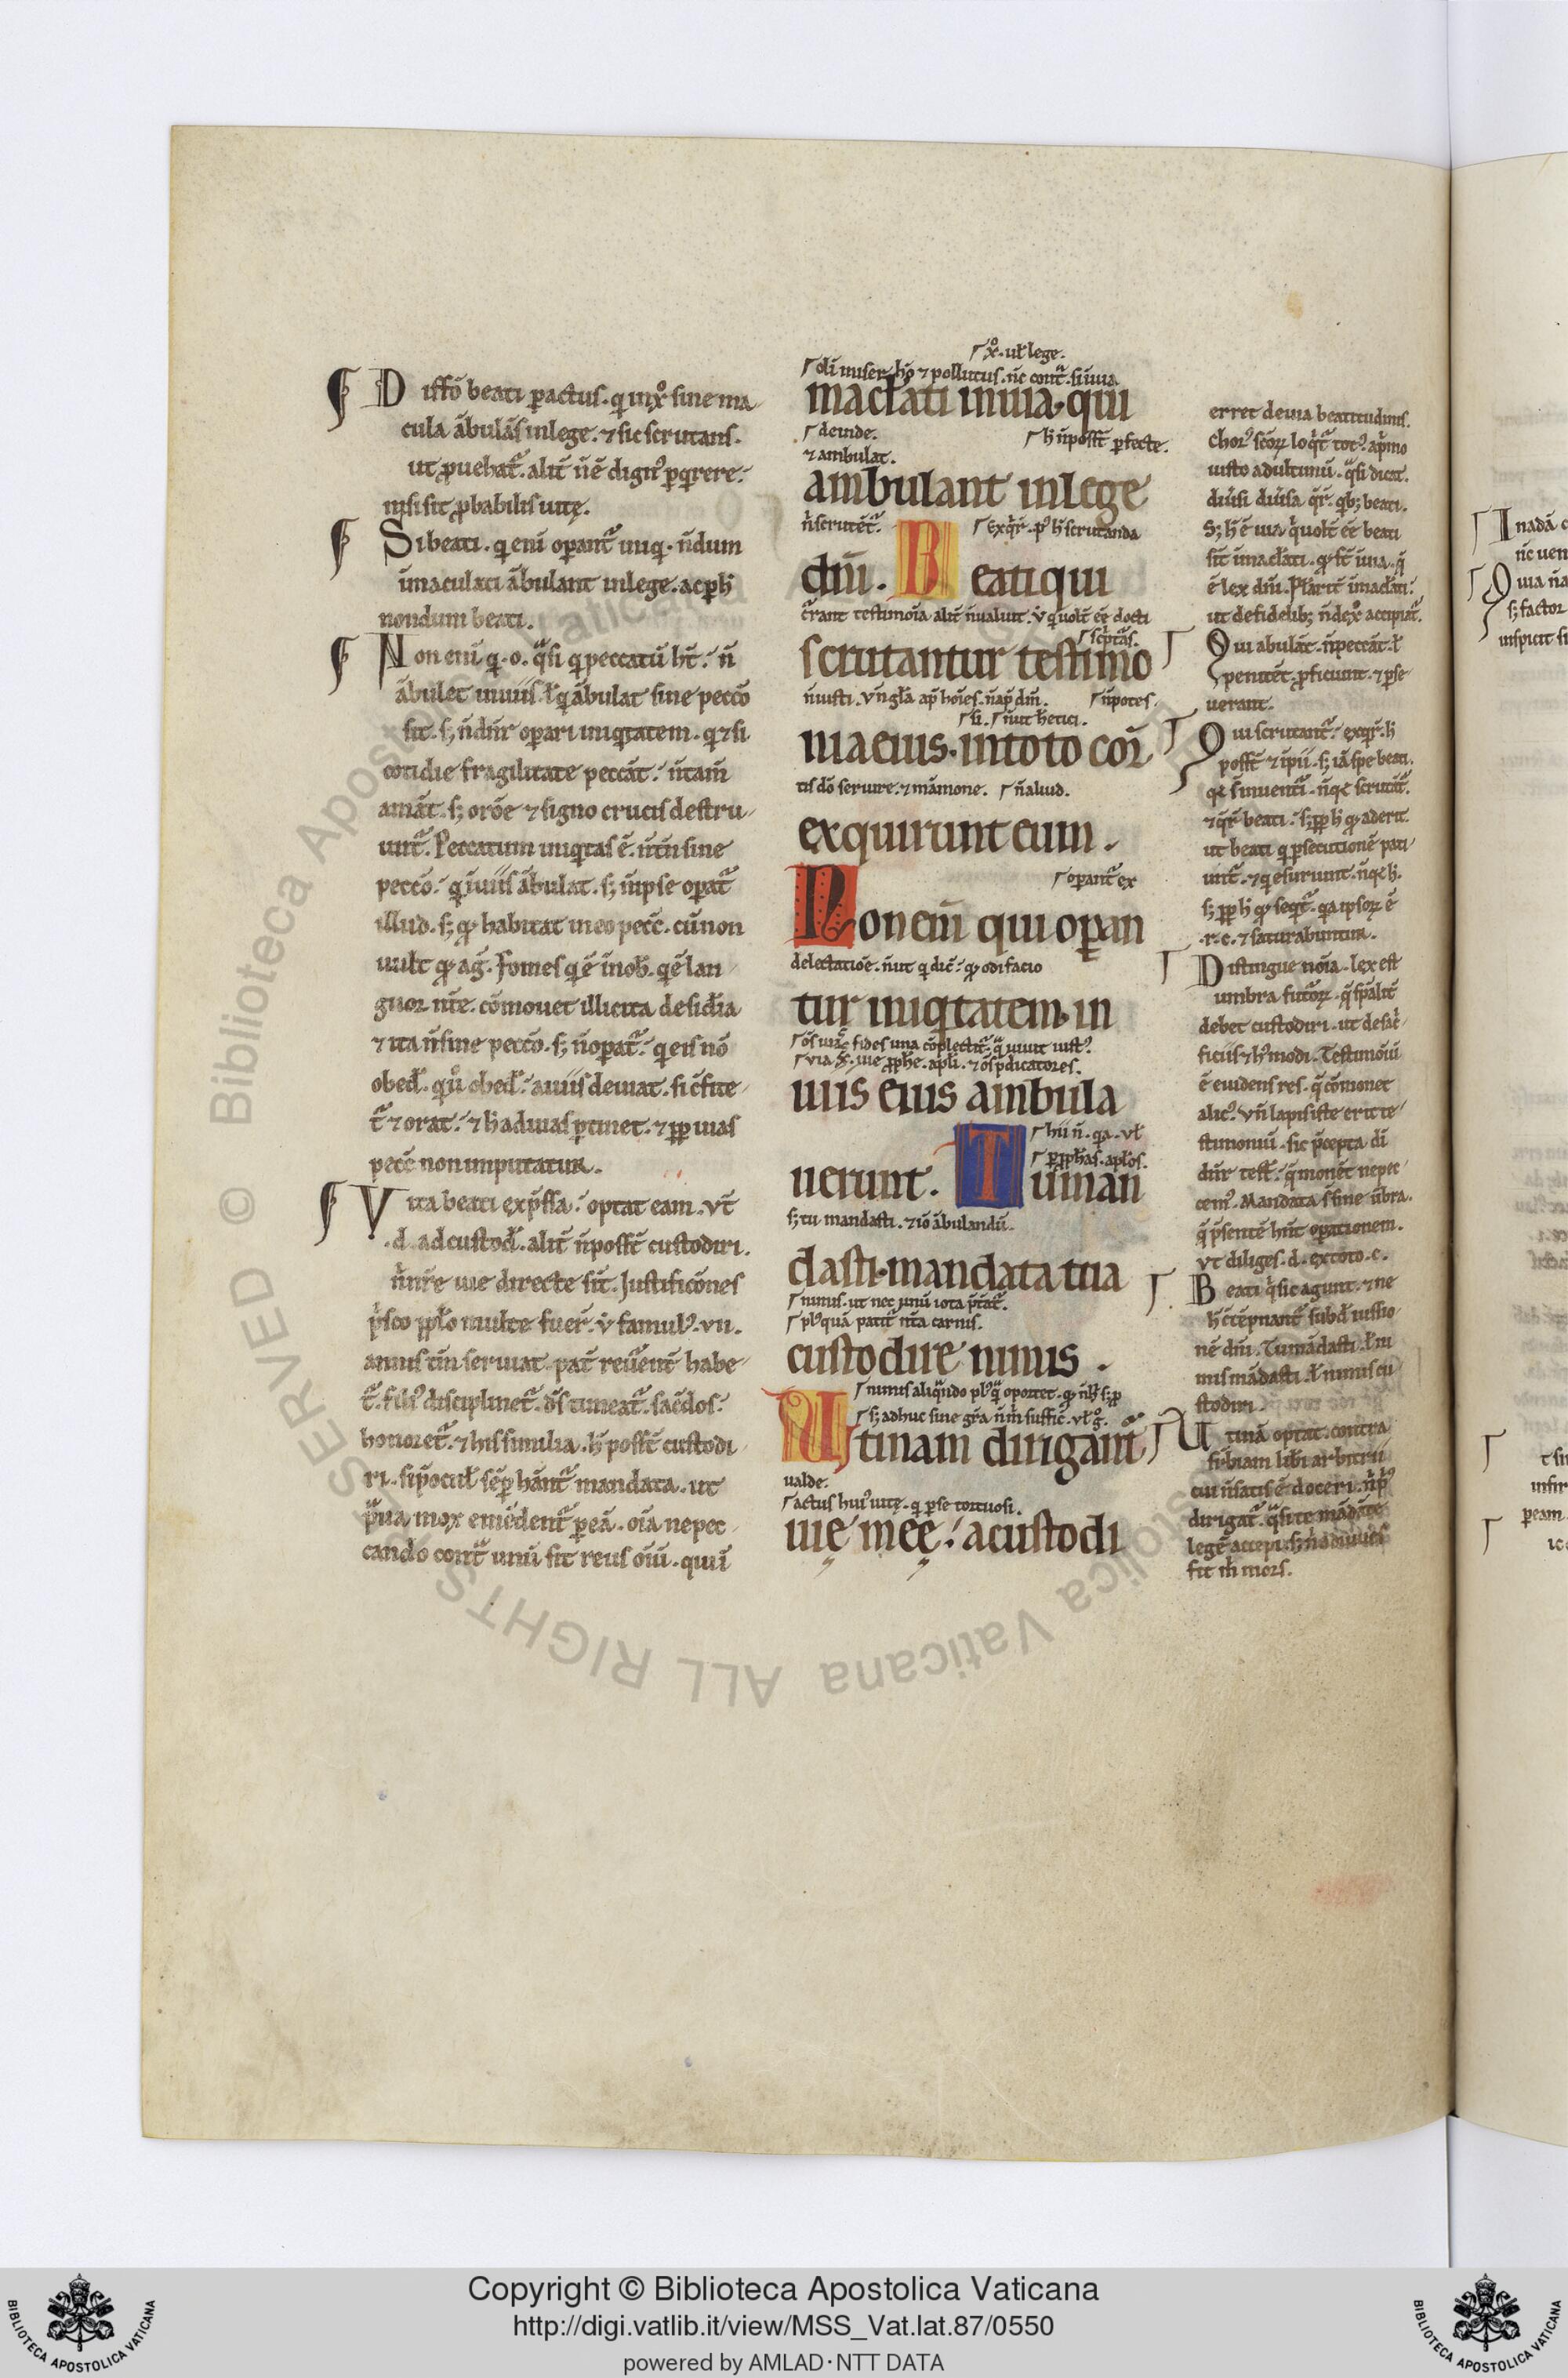 Diffō beati p actus. q in xº sine ma
cula ābulās in lege. ⁊ sic scrutans.
ut ꝓuehat. alit n̄ ē dign' pqrere.
nisi sit ꝓbabilis uitę.
Si beati. q eni opant iniq. n̄dum
īmaculati ābulant in lege. ac p h
nondum beati.
Non eni q. o. qͣsi q peccatū ht. n̄
ābulet in uiis. ł q ābulat sine peccō
sit. sꝫ n̄ dnr opari iniqtatem. q ⁊ si
cotidie fragilitate peccāt. n̄ tam̄
amāt. sꝫ orōe ⁊ signo crucis destru
unt. Peccatum iniqtas ē. n̄ tn̄ sine
peccō. q ī uiis ābulat. sꝫ n̄ ipse opat
illud. sꝫ qᵈ habitat in eo pecc̄. cū non
uult qᵈ aḡ. fomes q ē in ob. q ē lan
guor nr̄e. cōmouet illicita desidia
⁊ ita n̄ sine peccō. sꝫ n̄ opat. q eis nō
obed. qū obed. a uiis deuiat. si cfite
t ⁊ orat. ⁊ h ad uias ptinet. ⁊ pp uias
pecc̄ non imputatur.
Vita beati exp̄ssa. optat eam. vt
.d. ad custod. alit n̄ posst custodiri.
n̄ nr̄e uie directe sit. Justificōnes
pͥsco ppło multe fuer. v famul'. vii.
annis tn̄ seruiat. pat reuent habe
t. fili' disciplinet. ds̄ timeat. sac̄dos
honoret. ⁊ his similia. h posst custodi
ri. si p̄ocul sēp hānt mandata. ut
pͣua mox emēdent p ea. oīa ne pec
cando cont unū sit reus oīū. qui ī
xº. uł lege.
oli miser hō ⁊ pollutus. nc̄ cont. si ī uia
maclati in uia. qui
deinde.
h n̄ posst pfecte.
⁊ ambulat.
ambulant in lege
n̄ scrutēt.
Exqrͥt. p' h scrutanda
dni. Beati qui
erant testimoīa alit n̄ ualuit. v q uolt ee docti
scptas.
scrutantur testimo
n̄ iusti. vn̄ gła ap hoīes. n̄ ap dm̄.
n̄ potes.
si. n̄ ut hetici.
nia eius. in toto cor
tis dō seruire. ⁊ māmone. n̄ aliud.
exquirunt eum.
opant ex
Non eni qui opan
delectatiōe. n̄ ut q dic̄. qᵈ odi facio
tur iniqtatem. in
fides una cōplectit. q uiuit iust'.
via x. uie ꝓphe. apli. ⁊ oms pdicatores.
uiis eius ambula
hii n̄. qa. vł
p ꝓphas. aplos.
uerunt. Tu man
sꝫ tu mandasti. ⁊ iō ābulandū.
dasti. mandata tua
nimis. ut nec unū iota pt̄at.
pl' quā patit nr̄a carnis.
custodire nimis.
nimis aliqndo pl' q oportet.
sꝫ adhuc sine gra n̄ m suffic̄. vł
Utinam dirigant
ualde.
actus hui' uitę. q p se tortuosi.
uię meę. a custodi
erret de uia beatitudinis.
Chor' scōrum loqt tot'. a pͥmo
iusto ad ultimū. qͣsi dicat.
diusi diusa qr. qbꝫ beati.
Sꝫ h ē uia q uolt ee beati
sit īmaclati. qᵈ st ī uia. q
ē lex dni. Plarit īmaclati.
ut de fidelibꝫ n̄ de xº accipiat.
Qui abulāt. n̄ peccāt. ł
penitēt. ꝓficiunt. ⁊ pse
uerant.
Qui scrutant. exqr. h
posst ⁊ ipii. sꝫ iā spe beati.
⁊ qr beati. sꝫ pp h qᵈ aderit.
ut beati q psecutionē pati
unt. ⁊ q esuriunt. n̄ qꝫ h.
sꝫ pp h qᵈ seqt. qa ipsorum ē
.r. c. ⁊ saturabuntur.
Distingue noīa. lex est
umbra futorum. q spalit
debet custodiri. ut de sac
ficiis ⁊ h' modi. Testimoniū
ē euidens res. q cōmonet
alic'. Vn̄ lapis iste erit te
stimoniū. sic p̄cepta di
dnr test. q monēt ne pec
cem'. Mandata s̄ sine ūbra.
q p̄sentē hnt opationem.
vt diliges. d. ex toto. c.
Beati q sic agunt. ⁊ ne
h cōtēpnant subd iussio
nē dni. Tu mādasti. ł ni
mis mādasti. ł nimis cu
stodiri.
Utinā optat. contra
supbiam libi arbitrii
cui n̄ satis ē doceri. n̄
dirigat. qͣsi te mādante
legē accepi. sꝫ n̄
sit m mors.
Copyright © Biblioteca Apostolica Vaticana
http://digi.vatlib.it/view/MSS_Vat.lat.87/0550
powered by AMLAD·NTT DATA
BIBLIOTECA APOSTOLICA VATICANA
BIBLIOTECA APOSTOLICA VATICANA
© Biblioteca Apostolica Vaticana ALL RIGHTS RESERVED